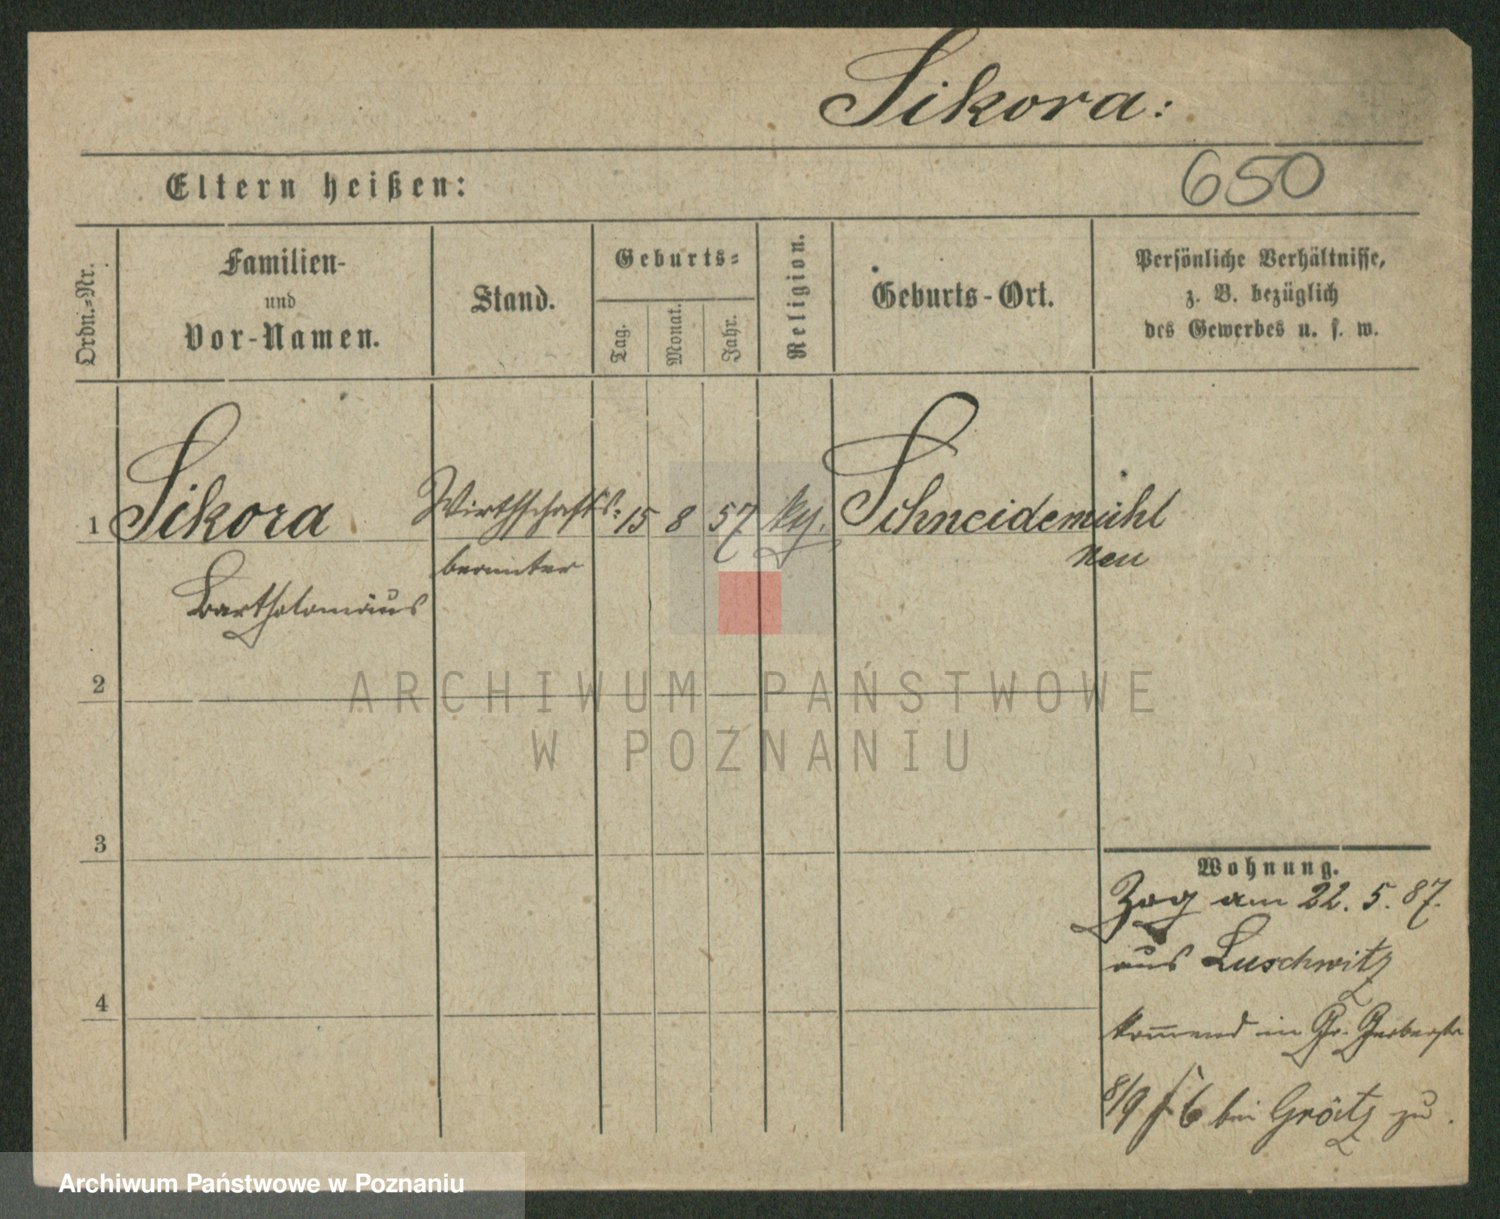 Sikora:
650
Eltern heißen:
Ordn.-Nr.
Familien-
und
Vor-Namen.
Stand.
Geburts-
Tag.
Monat.
Jahr.
Religion.
Geburts-Ort.
Persönliche Verhältnisse,
z. B. bezüglich
des Gewerbes u. s. w.
1 Sikora Wirthschafts- 15 8 57 Schneidemühl
beamter neu
Bartholomäus
2
ARCHIWUM PAŃSTWOWE
W POZNANIU
3
Wohnung.
Zog am 22. 5. 87.
aus Luschwitz
kommend in Gr. Gerberstr
8/9 bei zu.
4
Archiwum Państwowe w Poznaniu